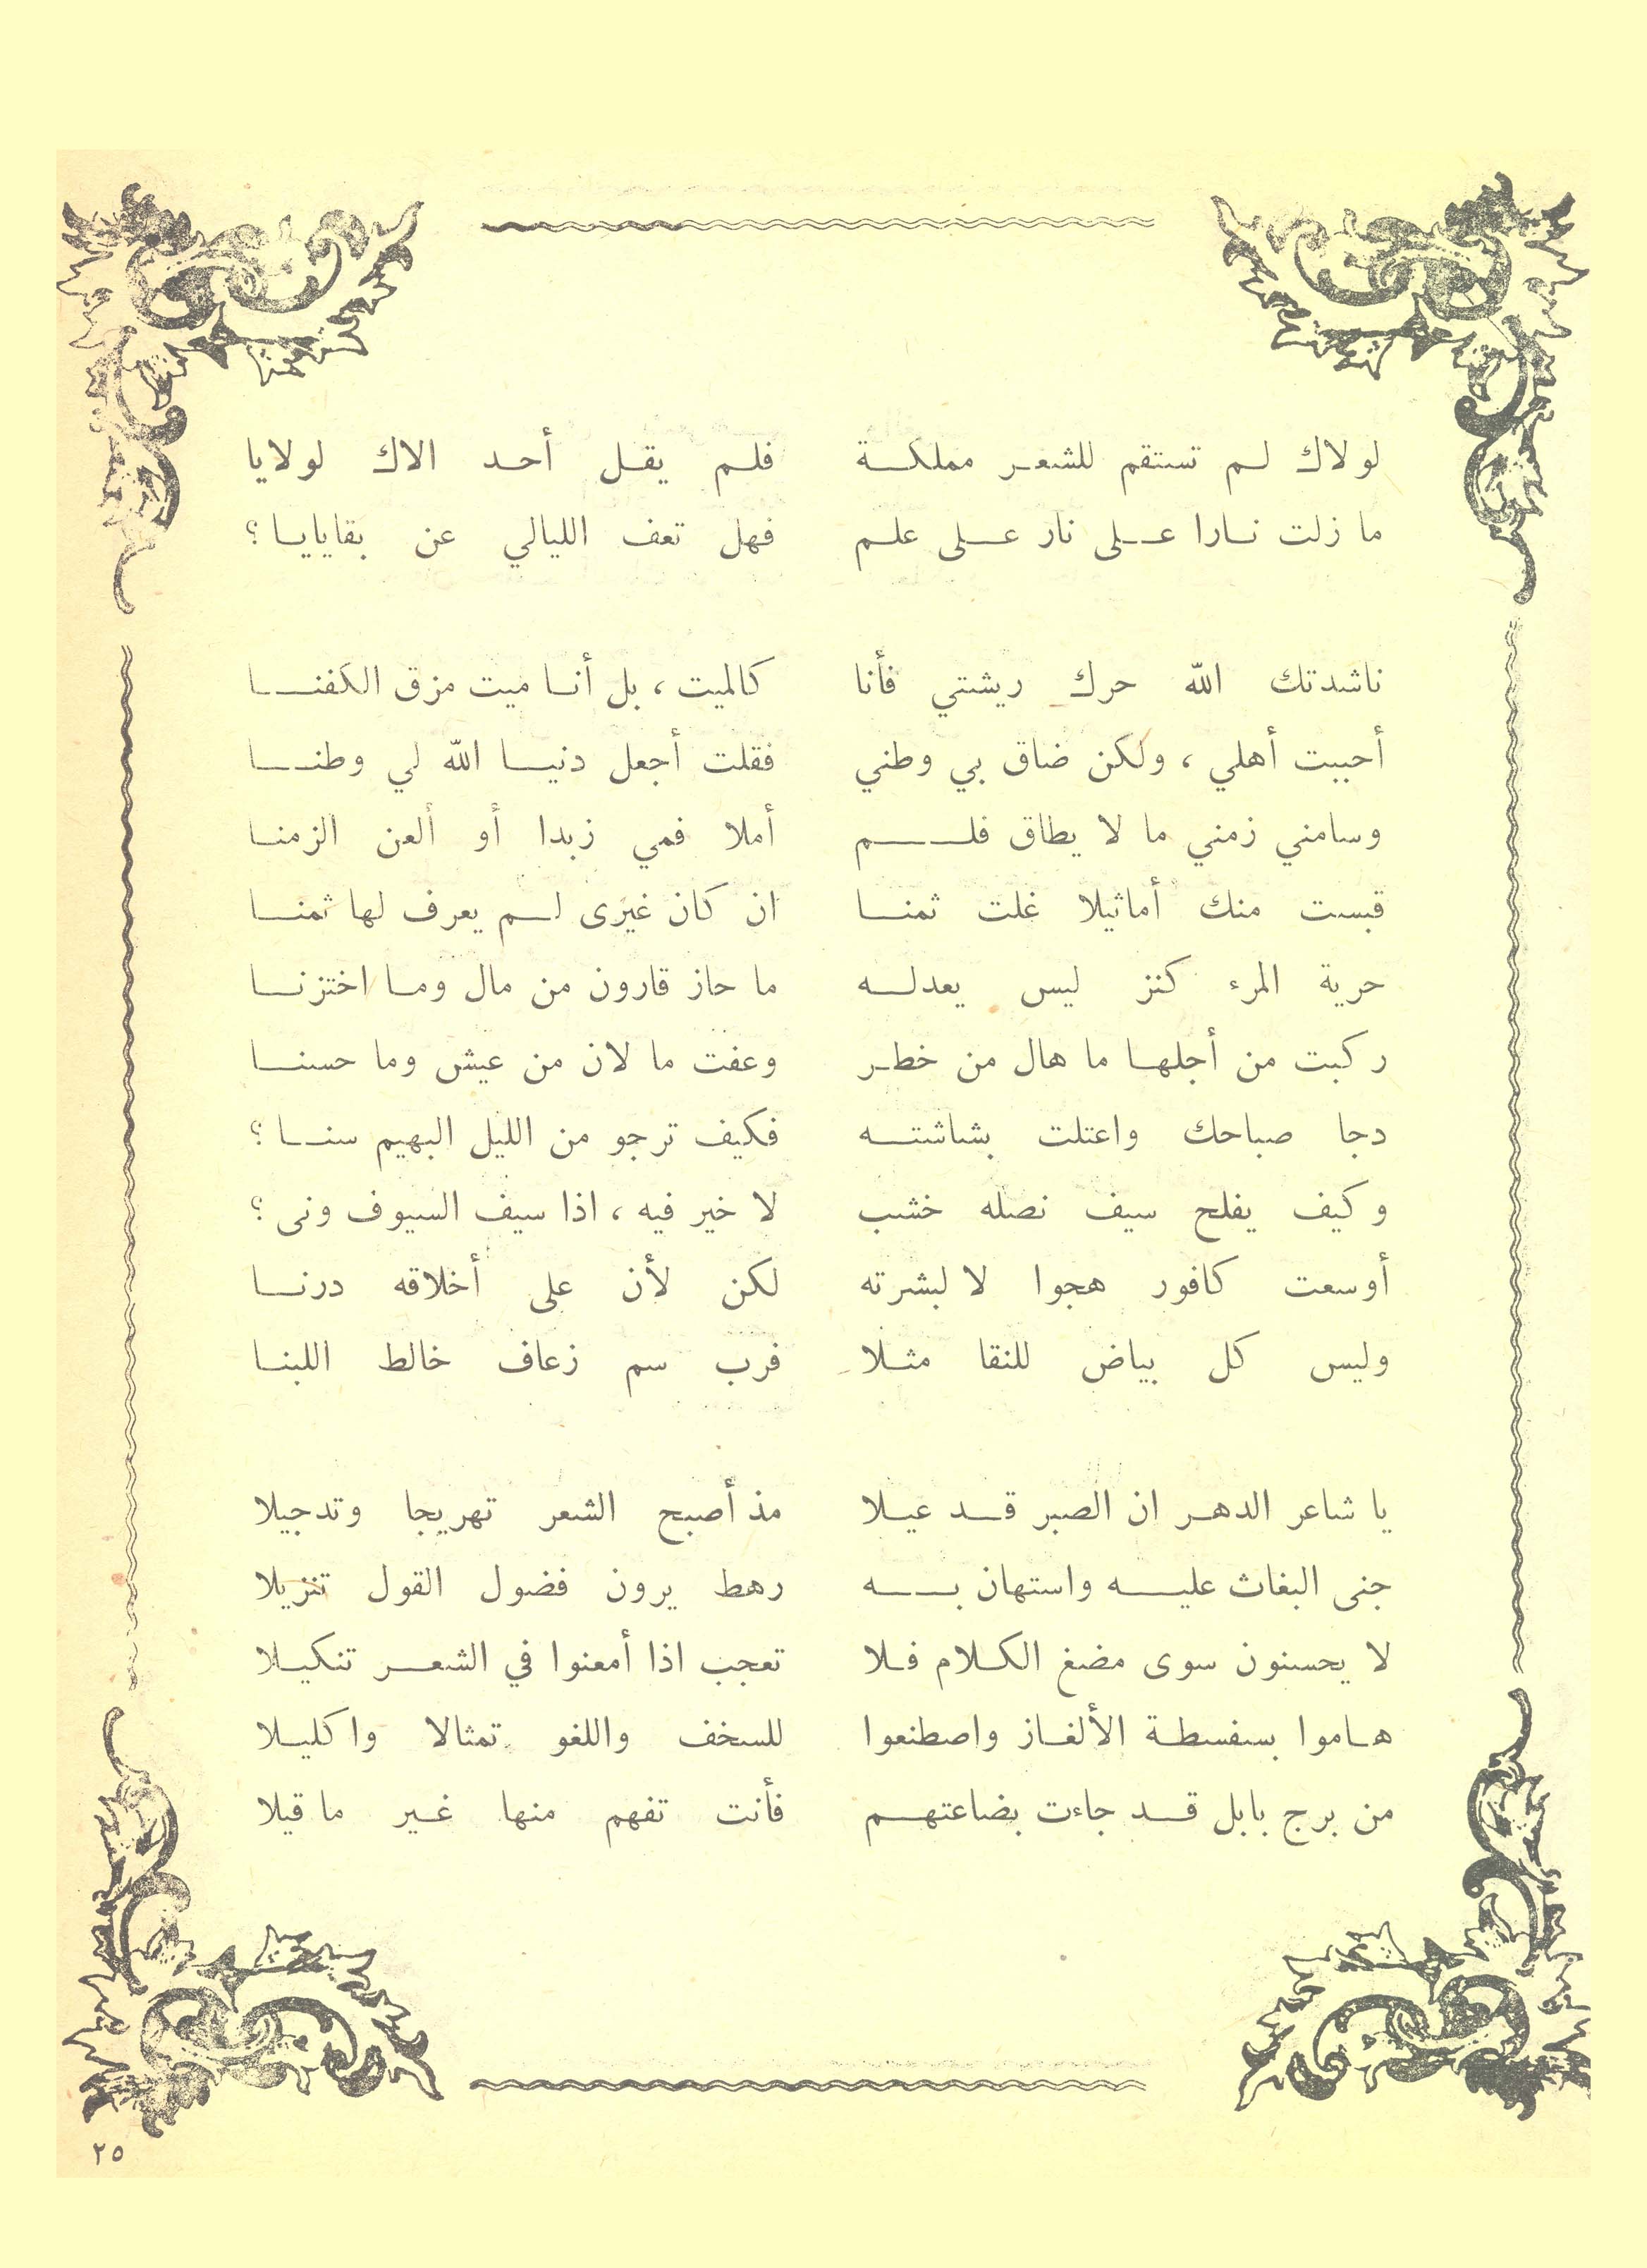 لولاك لم تستقم للشعر مملكة فلم يقل أحد الاك لولايا
ما زلت نارا على نار على علم فهل تعف الليالي عن بقايايا ؟
ناشدتك الله حرك ريشتي فأنا كالميت ، بل أنا ميت مزق الكفنا
أحببت أهلي ، ولكن ضاق بي وطني فقلت أجعل دنيا الله لي وطنا
وسامني زمني ما لا يطاق فلم أملا فمي زبدا أو ألعن الزمنا
قبست منك أماثيلا غلت ثمنا ان كان غيرى لم يعرف لها ثمنا
حرية المرء كنز ليس يعدله ما حاز قارون من مال وما اختزنا
ركبت من أجلها ما هال من خطر وعفت ما لان من عيش وما حسنا
دجا صباحك واعتلت بشاشته فكيف ترجو من الليل البهيم سنا ؟
وكيف يفلح سيف نصله خشب لا خير فيه ، اذا سيف السيوف ونى ؟
أوسعت كافور هجوا لا لبشرته لكن لأن على أخلاقه درنا
وليس كل بياض للنقا مثلا فرب سم زعاف خالط اللبنا
يا شاعر الدهر ان الصبر قد عيلا مذ أصبح الشعر تهريجا وتدجيلا
جنى البغاث عليه واستهان به رهط يرون فضول القول تنزيلا
لا يحسنون سوى مضغ الكلام فلا تعجب اذا أمعنوا في الشعر تنكيلا
هاموا بسفسطة الألغاز واصطنعوا للسخف واللغو تمثالا واكليلا
من برج بابل قد جاءت بضاعتهم فأنت تفهم منها غير ما قيلا
٢٥